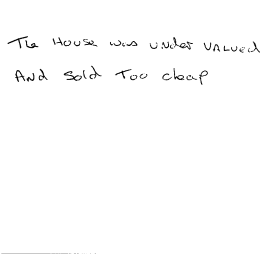 The House was under valued
And Sold Too cheap